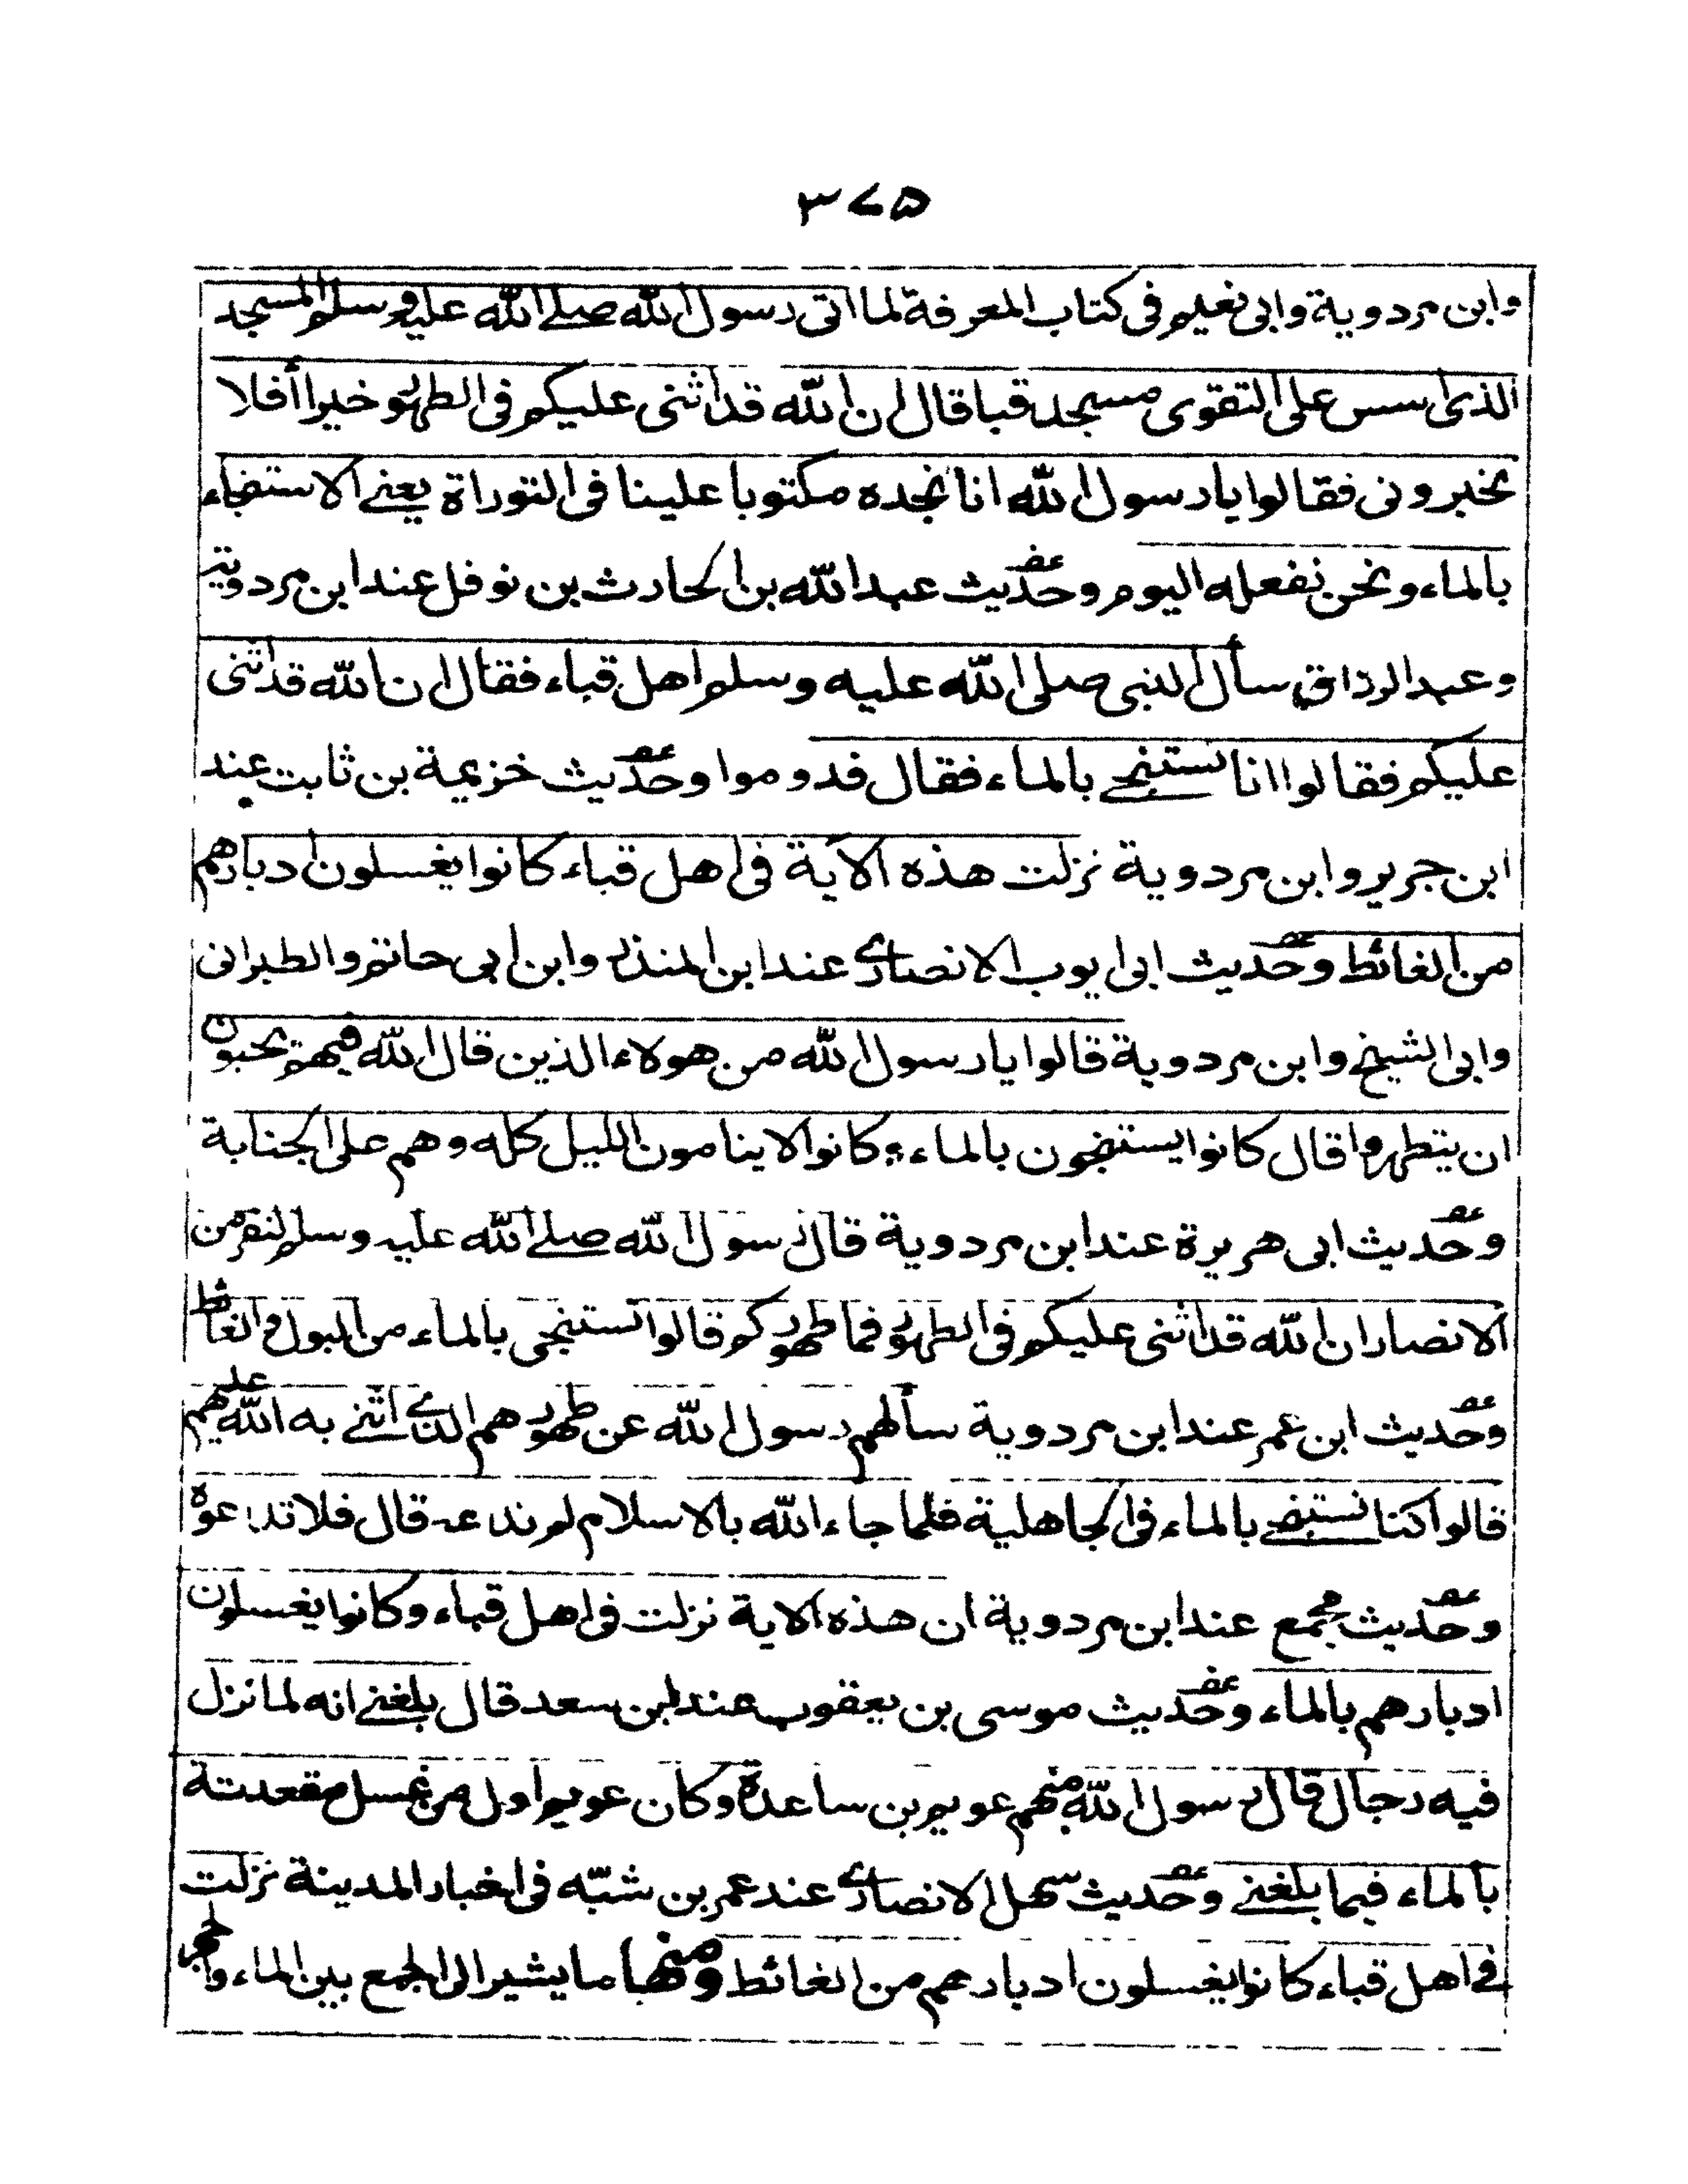 ٣٧٥
وابن مردوية وابى نعيم فى كتاب المعرفة لما اتى رسول الله صلى الله عليه وسلم المسجد
الذى اسس على التقوى مسجد قبا قال ان الله قد اثنى عليكم فى الطهور خيرا أفلا
تخبرونى فقالوا يا رسول الله انا نجده مكتوبا علينا فى التوراة يعنى الاستنجاء
بالماء ونحن نفعله اليوم وحديث عبد الله بن الحارث بن نوفل عند ابن مردوية
وعبد الرزاق سأل النبى صلى الله عليه وسلم اهل قباء فقال ان الله قد اثنى
عليكم فقالوا انا نستنجى بالماء فقال فدوموا وحديث خزيمة بن ثابت عند
ابن جرير وابن مردوية نزلت هذه الآية فى اهل قباء كانوا يغسلون ادبارهم
من الغائط وحديث ابى ايوب الانصارى عند ابن المنذر وابن ابى حاتم والطبرانى
وابى الشيخ وابن مردوية قالوا يا رسول الله من هولاء الذين قال الله فيهم يحبون
ان يتطهروا قال كانوا يستنجون بالماء وكانوا لا ينامون الليل كله وهم على الجنابة
وحديث ابى هريرة عند ابن مردوية قال رسول الله صلى الله عليه وسلم لنفر من
الانصار ان الله قد اثنى عليكم فى الطهور فما طهوركم قالوا نستنجى بالماء من البول والغائط
وحديث ابن عمر عند ابن مردوية سألهم رسول الله عن طهورهم الذى اثنى به الله عليهم
قالوا كنا نستنجى بالماء فى الجاهلية فلما جاء الله بالاسلام لم ندعه قال فلا تدعوه
وحديث مجمع عند ابن مردوية ان هذه الاية نزلت فى اهل قباء وكانوا يغسلون
ادبارهم بالماء وحديث موسى بن يعقوب عند ابن سعد قال بلغنى انه لما نزل
فيه رجال قال رسول الله منهم عويم بن ساعدة وكان عويم اول من غسل مقعدته
بالماء فيما بلغنى وحديث سهل الانصارى عند عمر بن شبّه فى اخبار المدينة نزلت
فى اهل قباء كانوا يغسلون ادبارهم من الغائط ومنها ما يشير الى الجمع بين الماء والحجر